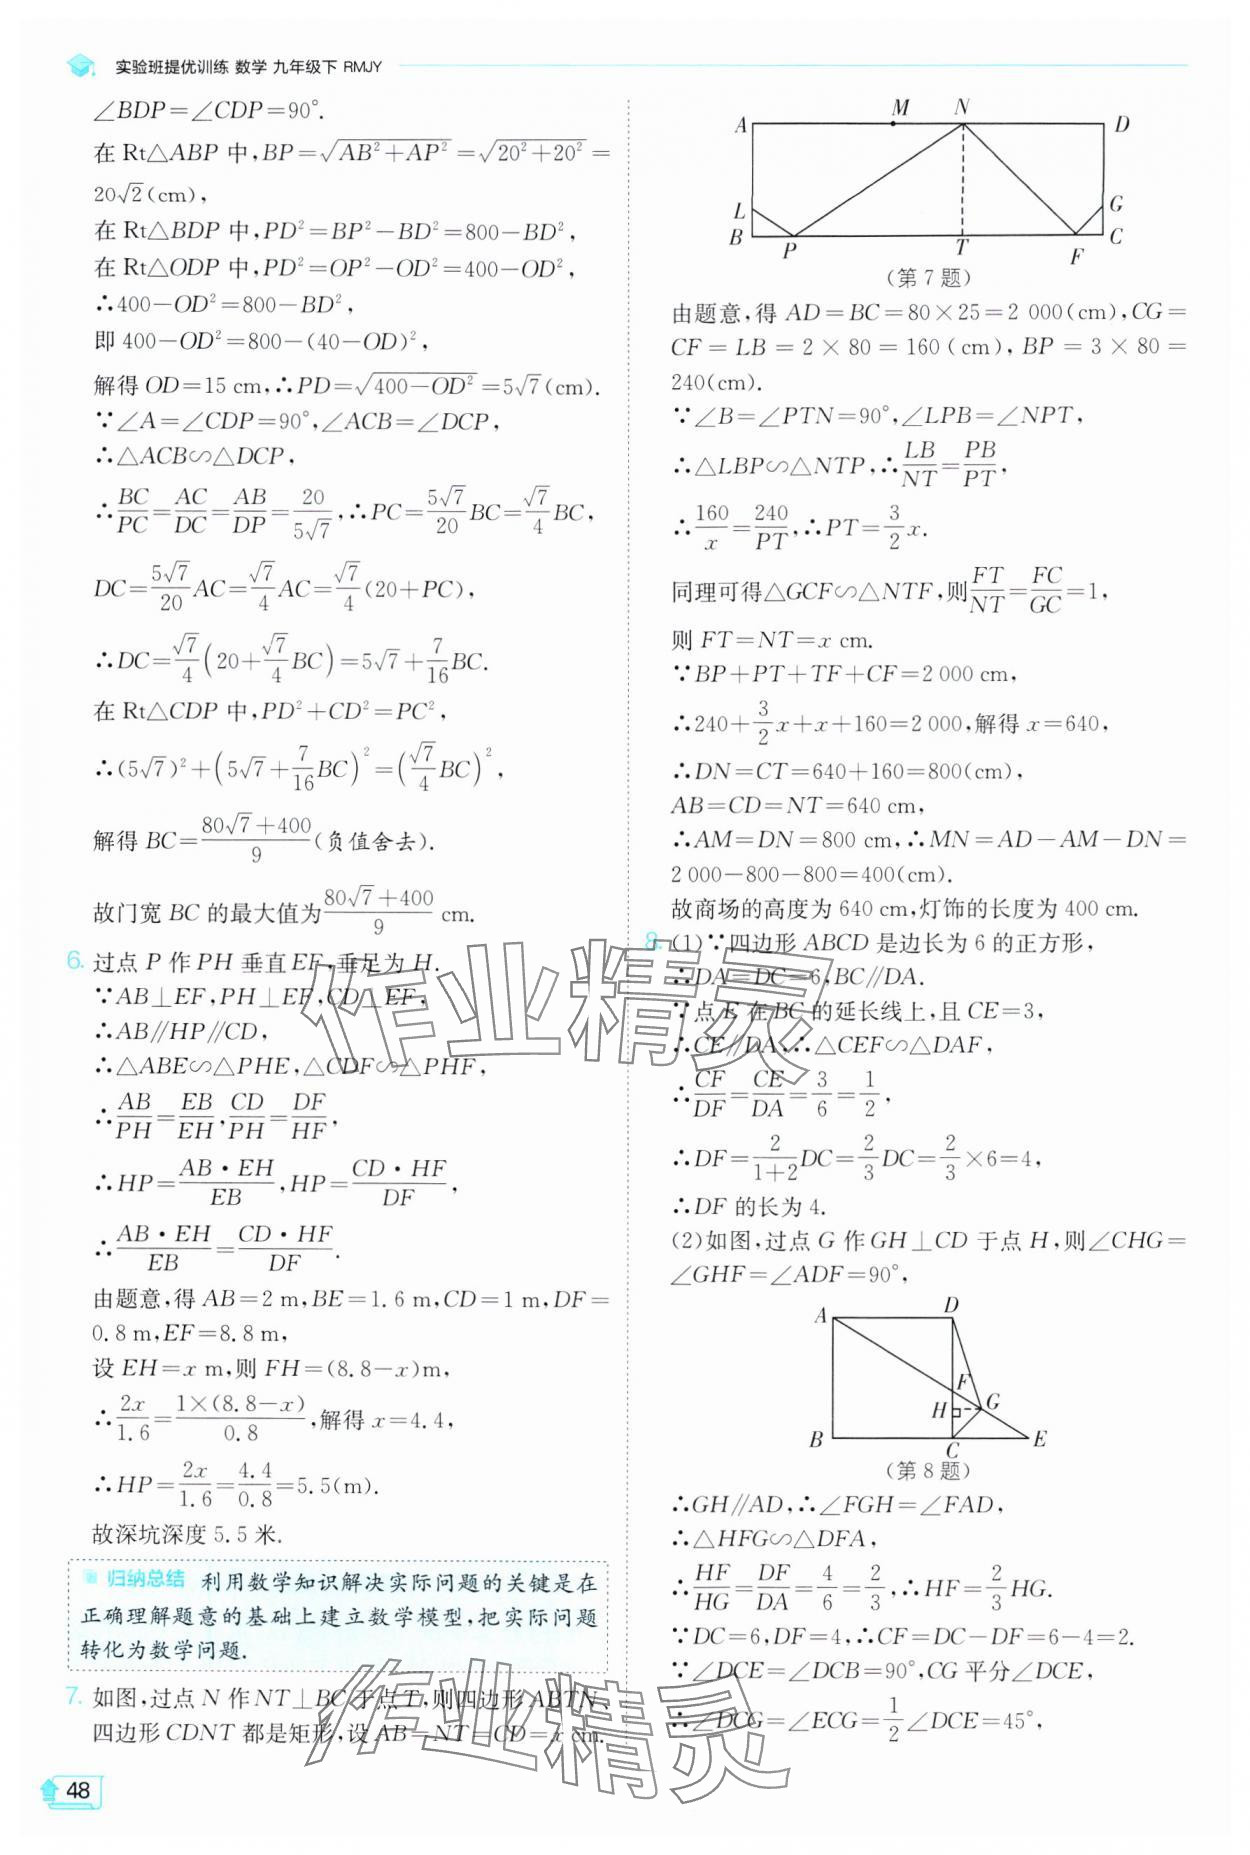 实验班提优训练 数学 九年级下 RMJY
∠BDP=∠CDP=90°.
在 Rt△ABP 中,BP=√(AB²+AP²)=√(20²+20²)=
20√2(cm),
在 Rt△BDP 中,PD²=BP²-BD²=800-BD²,
在 Rt△ODP 中,PD²=OP²-OD²=400-OD²,
∴400-OD²=800-BD²,
即 400-OD²=800-(40-OD)²,
解得 OD=15 cm,∴PD=√(400-OD²)=5√7(cm).
∵∠A=∠CDP=90°,∠ACB=∠DCP,
∴△ACB∽△DCP,
∴BC/PC=AC/DC=AB/DP=20/(5√7),∴PC=(5√7/20)BC=(√7/4)BC,
DC=(5√7/20)AC=(√7/4)AC=(√7/4)(20+PC),
∴DC=(√7/4)(20+(√7/4)BC)=5√7+(7/16)BC.
在 Rt△CDP 中,PD²+CD²=PC²,
∴(5√7)²+(5√7+(7/16)BC)²=((√7/4)BC)²,
解得 BC=(80√7+400)/9(负值舍去).
故门宽 BC 的最大值为(80√7+400)/9 cm.
6. 过点 P 作 PH 垂直 EF,垂足为 H.
∵AB⊥EF,PH⊥EF,CD⊥EF,
∴AB∥HP∥CD,
∴△ABE∽△PHE,△CDF∽△PHF,
∴AB/PH=EB/EH,CD/PH=DF/HF,
∴HP=(AB·EH)/EB,HP=(CD·HF)/DF,
∴(AB·EH)/EB=(CD·HF)/DF.
由题意,得 AB=2 m,BE=1.6 m,CD=1 m,DF=
0.8 m,EF=8.8 m,
设 EH=x m,则 FH=(8.8-x)m,
∴2x/1.6=1×(8.8-x)/0.8,解得 x=4.4,
∴HP=2x/1.6=4.4/0.8=5.5(m).
故深坑深度 5.5 米.
归纳总结 利用数学知识解决实际问题的关键是在
正确理解题意的基础上建立数学模型,把实际问题
转化为数学问题.
7. 如图,过点 N 作 NT⊥BC 于点 T,则四边形 ABTN、
四边形 CDNT 都是矩形,设 AB=NT=CD=x cm.
48
A M N D
L G
B P T F C
(第 7 题)
由题意,得 AD=BC=80×25=2 000(cm),CG=
CF=LB=2×80=160(cm),BP=3×80=
240(cm).
∵∠B=∠PTN=90°,∠LPB=∠NPT,
∴△LBP∽△NTP,∴LB/NT=PB/PT,
∴160/x=240/PT,∴PT=(3/2)x.
同理可得△GCF∽△NTF,则FT/NT=FC/GC=1,
则 FT=NT=x cm.
∵BP+PT+TF+CF=2 000 cm,
∴240+(3/2)x+x+160=2 000,解得 x=640,
∴DN=CT=640+160=800(cm),
AB=CD=NT=640 cm,
∴AM=DN=800 cm,∴MN=AD-AM-DN=
2 000-800-800=400(cm).
故商场的高度为 640 cm,灯饰的长度为 400 cm.
8. (1)∵四边形 ABCD 是边长为 6 的正方形,
∴DA=DC=6,BC∥DA.
∵点 E 在 BC 的延长线上,且 CE=3,
∴CE∥DA,∴△CEF∽△DAF,
∴CF/DF=CE/DA=3/6=1/2,
∴DF=(2/(1+2))DC=(2/3)DC=(2/3)×6=4,
∴DF 的长为 4.
(2)如图,过点 G 作 GH⊥CD 于点 H,则∠CHG=
∠GHF=∠ADF=90°,
A D
F
H G
B C E
(第 8 题)
∴GH∥AD,∴∠FGH=∠FAD,
∴△HFG∽△DFA,
∴HF/HG=DF/DA=4/6=2/3,∴HF=(2/3)HG.
∵DC=6,DF=4,∴CF=DC-DF=6-4=2.
∵∠DCE=∠DCB=90°,CG 平分∠DCE,
∴∠DCG=∠ECG=(1/2)∠DCE=45°,
作业精灵
作业精灵